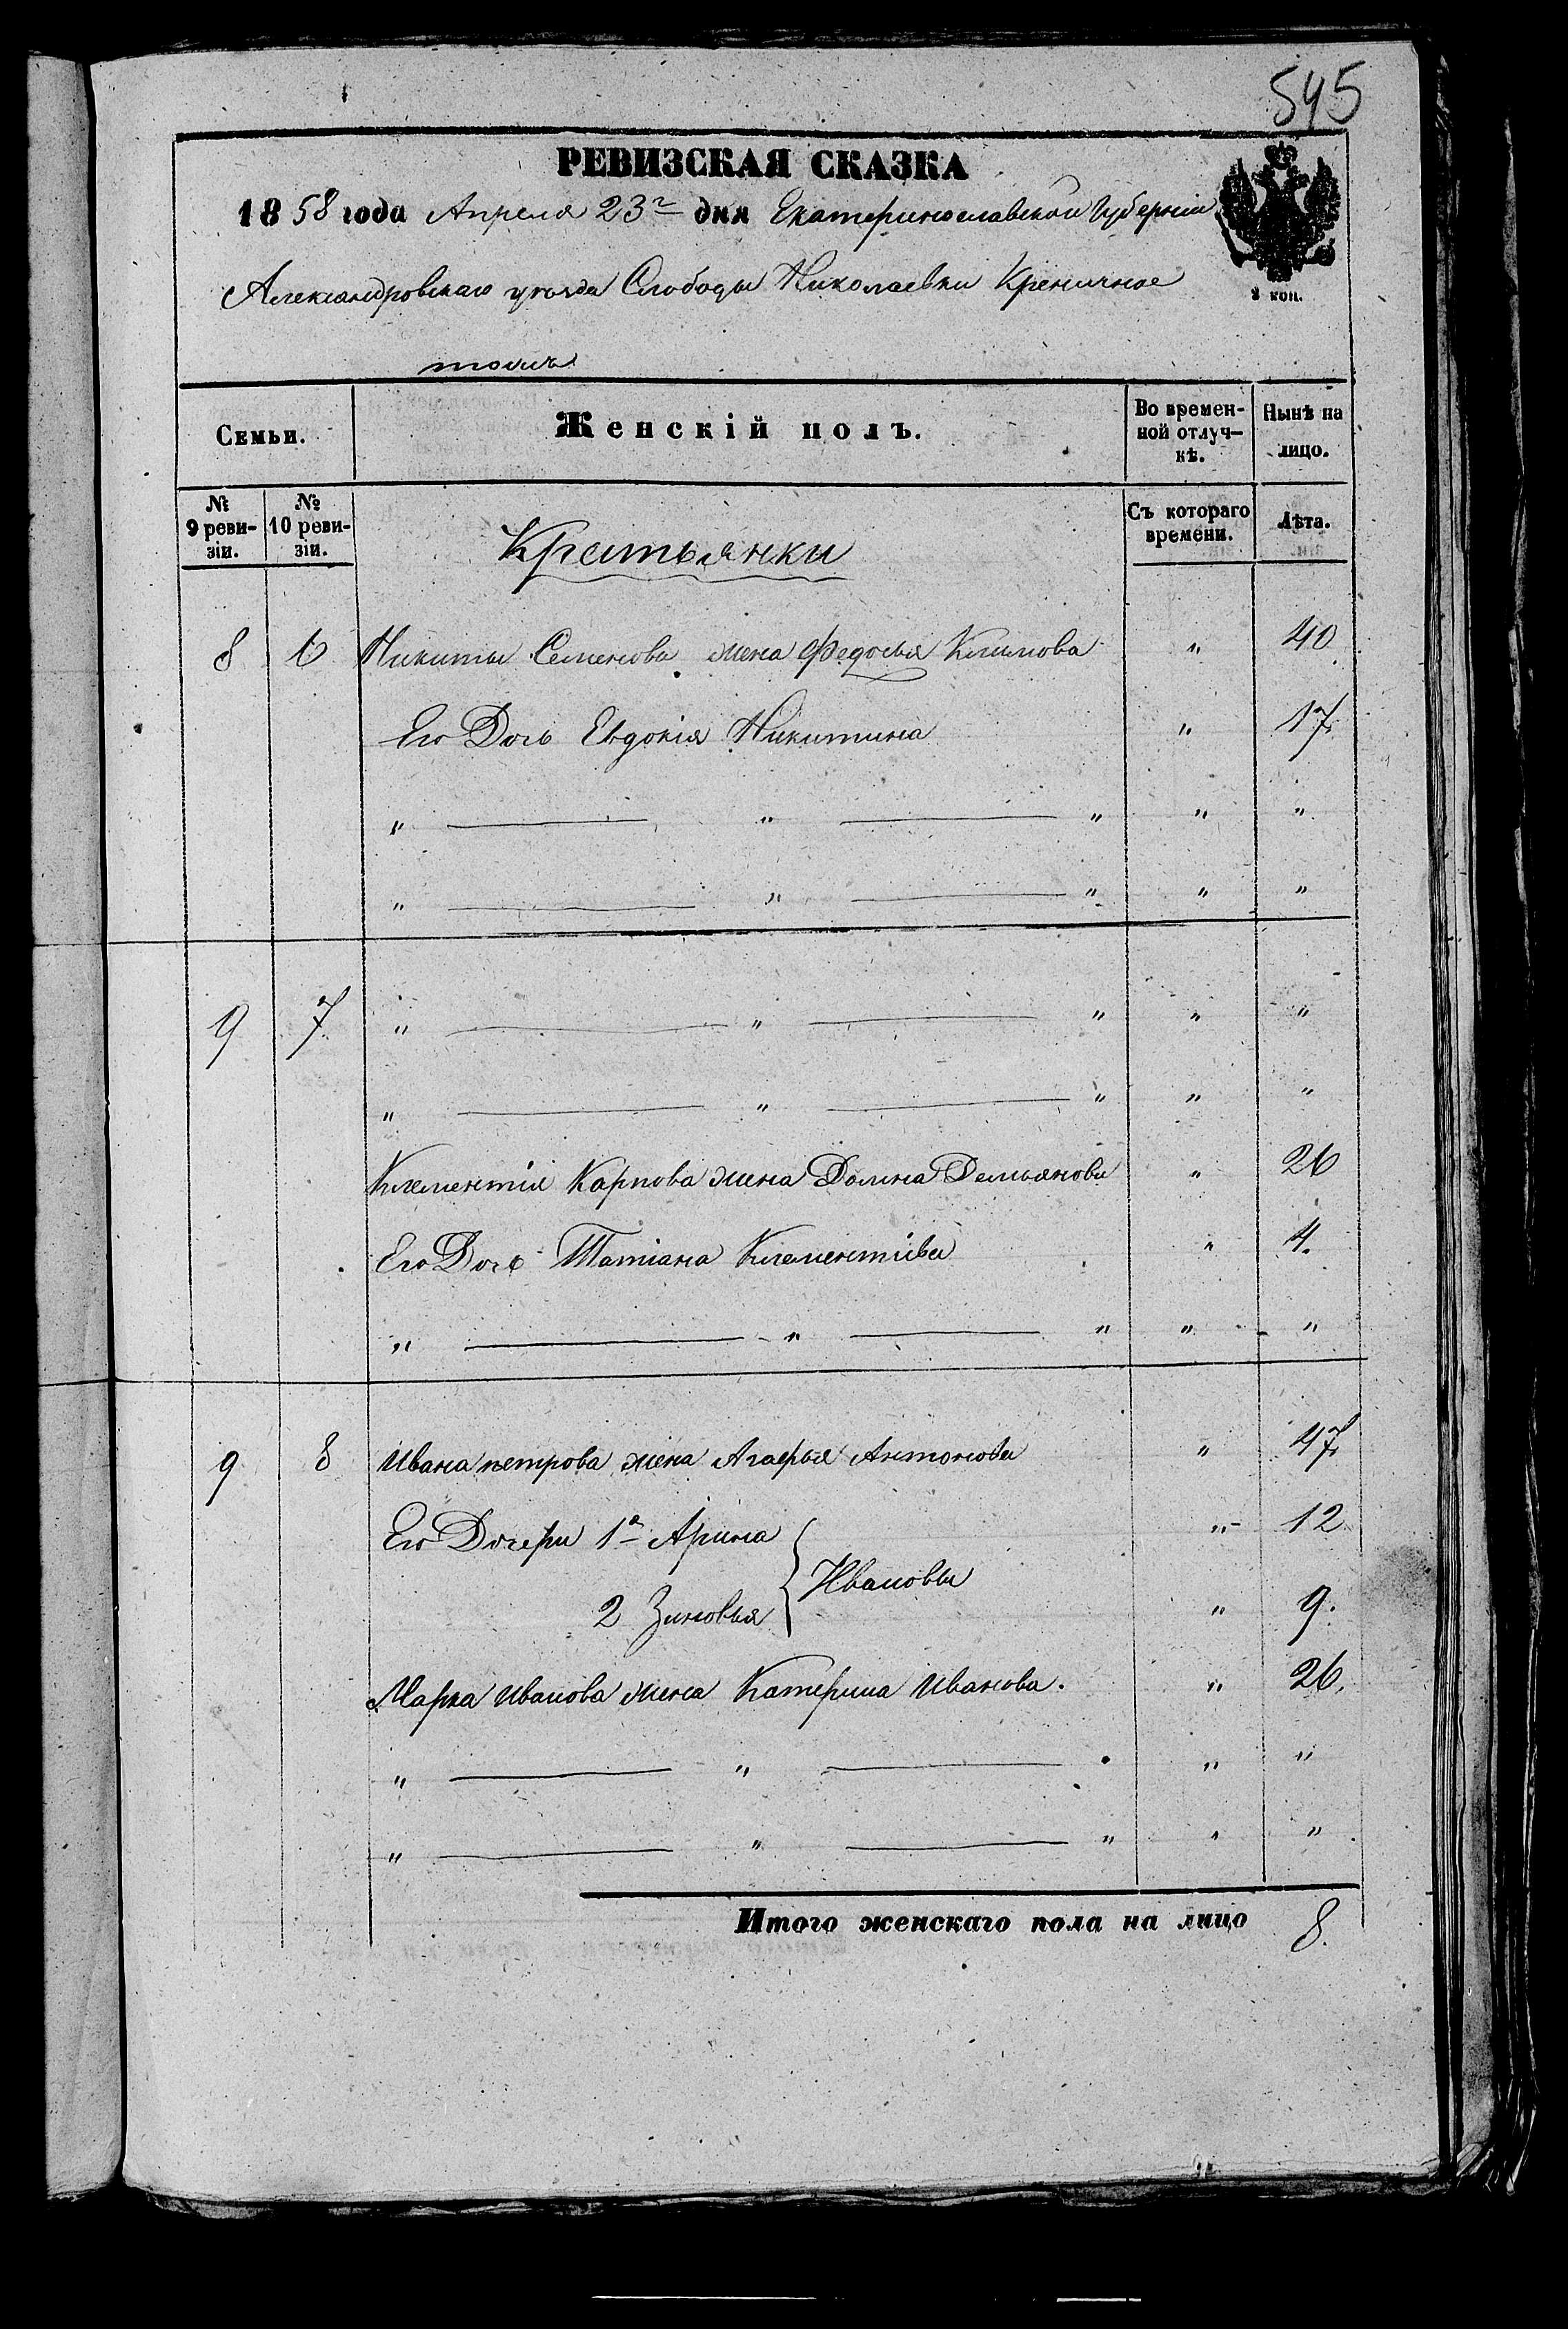 545
РЕВИЗСКАЯ СКАЗКА
1858 года Апреля 23го дня Екатеринославской Губернии
Александровскаго уезда Слободы Николаевки Креничное
тожъ
2 коп.
Семьи. Женскій полъ. Во времен-ной отлуч-кѣ. Нынѣ на лицо.
№ 9 реви-зіи. № 10 реви-зіи. Крестьянки Съ котораго времени. Лѣта.
8 6 Никиты Семенова жена Федосья Климова " 40
Его Дочь Евдокія Никитина " 17.
" — " — " " "
" — " — " " "
9 7 " — " — " " "
" — " — " " "
Клементія Карпова жена Домна Демьянова " 26
Его Дочь Татіана Клементіева " 4.
" — " — " " "
9 8 Ивана петрова жена Агафья Антонова " 47.
Его Дочери 1я Арина " 12
Ивановы
2 Зиновья " 9.
Марка Иванова жена Катерина Иванова. " 26.
" — " — " "
" — " — " " "
Итого женскаго пола на лицо 8.